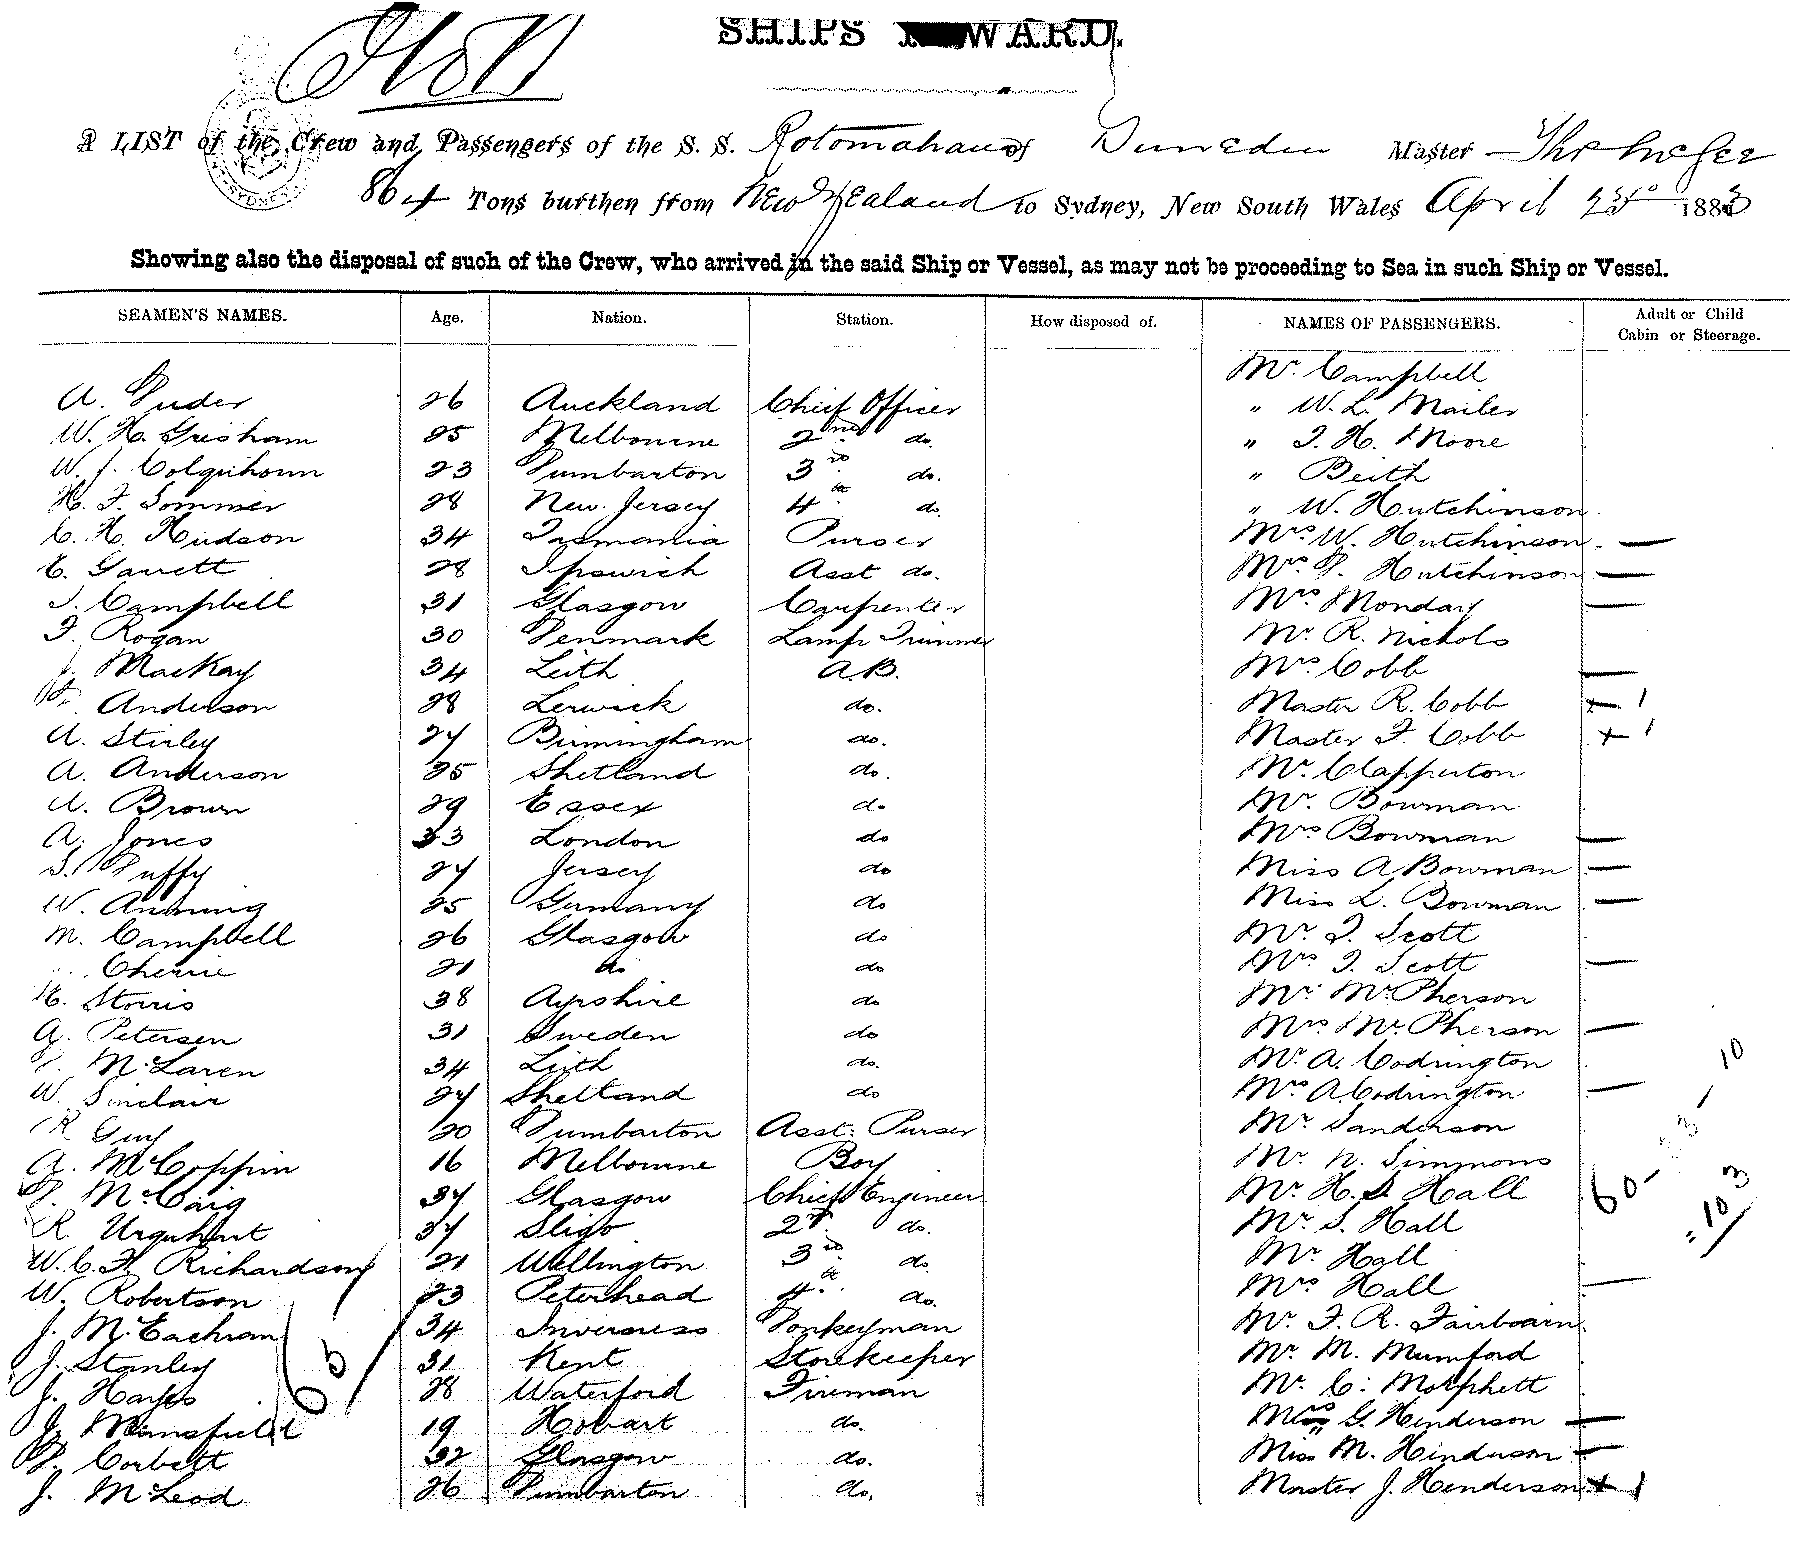 SHIPS INWARD.
A LIST of the Crew and Passengers of the S. S. Rotomahana of Dunedin Master Thos McGee
864 Tons burthen from New Zealand to Sydney, New South Wales April 1883
Showing also the disposal of such of the Crew, who arrived in the said Ship or Vessel, as may not be proceeding to Sea in such Ship or Vessel.
SEAMEN'S NAMES. Age. Nation. Station. How disposed of. NAMES OF PASSENGERS. Adult or Child Cabin or Steerage.
Mr. Campbell
A. Duder 26 Auckland Chief Officer " W. L. Mailer
W. H. Gresham 25 Melbourne 2nd do. " T. H. Moore
W. J. Colquhoun 23 Dumbarton 3rd do. " Beith
H. F. Sommer 28 New Jersey 4th do. " W. Hutchinson
C. H. Hudson 34 Tasmania Purser Mrs W. Hutchinson —
E. Garrett 28 Ipswich Asst do. Hutchinson —
Campbell 31 Glasgow Carpenter Mrs Monday —
Rogan 30 Denmark Lamp Trimmer Mr. R. Nichols
J. MacKay 34 Leith A.B. Mrs Cobb —
Anderson 28 Lerwick do. Master R. Cobb — 1
A. Stirley 24 Birmingham do. Master F. Cobb + 1
A. Anderson 25 Shetland do. Mr. Clapperton
A. Brown 29 Essex do Mr. Bowman
A. Jones 33 London do Mrs Bowman —
Duffy 24 Jersey do Miss A Bowman —
W. Anning 25 Germany do Miss L. Bowman —
M. Campbell 26 Glasgow do Mr. J. Scott
Cherrie 21 do do Mrs J. Scott —
H. Storris 38 Ayrshire do Mr. McPherson
A. Petersen 31 Sweden do Mrs McPherson —
McLaren 34 Leith do. Mr A. Codrington
W. Sinclair 24 Shetland do Mrs A Codrington —
R Guy 20 Dumbarton Asst. Purser Mr. Sanderson
A. McCoppin 16 Melbourne Boy Mr. N. Simmons
McCaig 34 Glasgow Chief Engineer Mr. H. S. Hall
R Urquhart 34 Sligo 2d. do. Mr. S. Hall
W. C. F. Richardson 21 Wellington 3rd do. Mr. Hall
W. Robertson 23 Peterhead 4th do. Mrs Hall —
J. McEachran 34 Inverness Donkeyman Mr. F. R. Fairbairn
J. Stanley 31 Kent Storekeeper Mr. M. Mumford
J. Hayes 28 Waterford Fireman Mr. C. Morphett
J. Mansfield 19 Hobart do. Mrs G. Henderson —
Corbett 32 Glasgow do. Miss M. Henderson —
J. McLeod 26 Dumbarton do. Master J. Henderson + 1